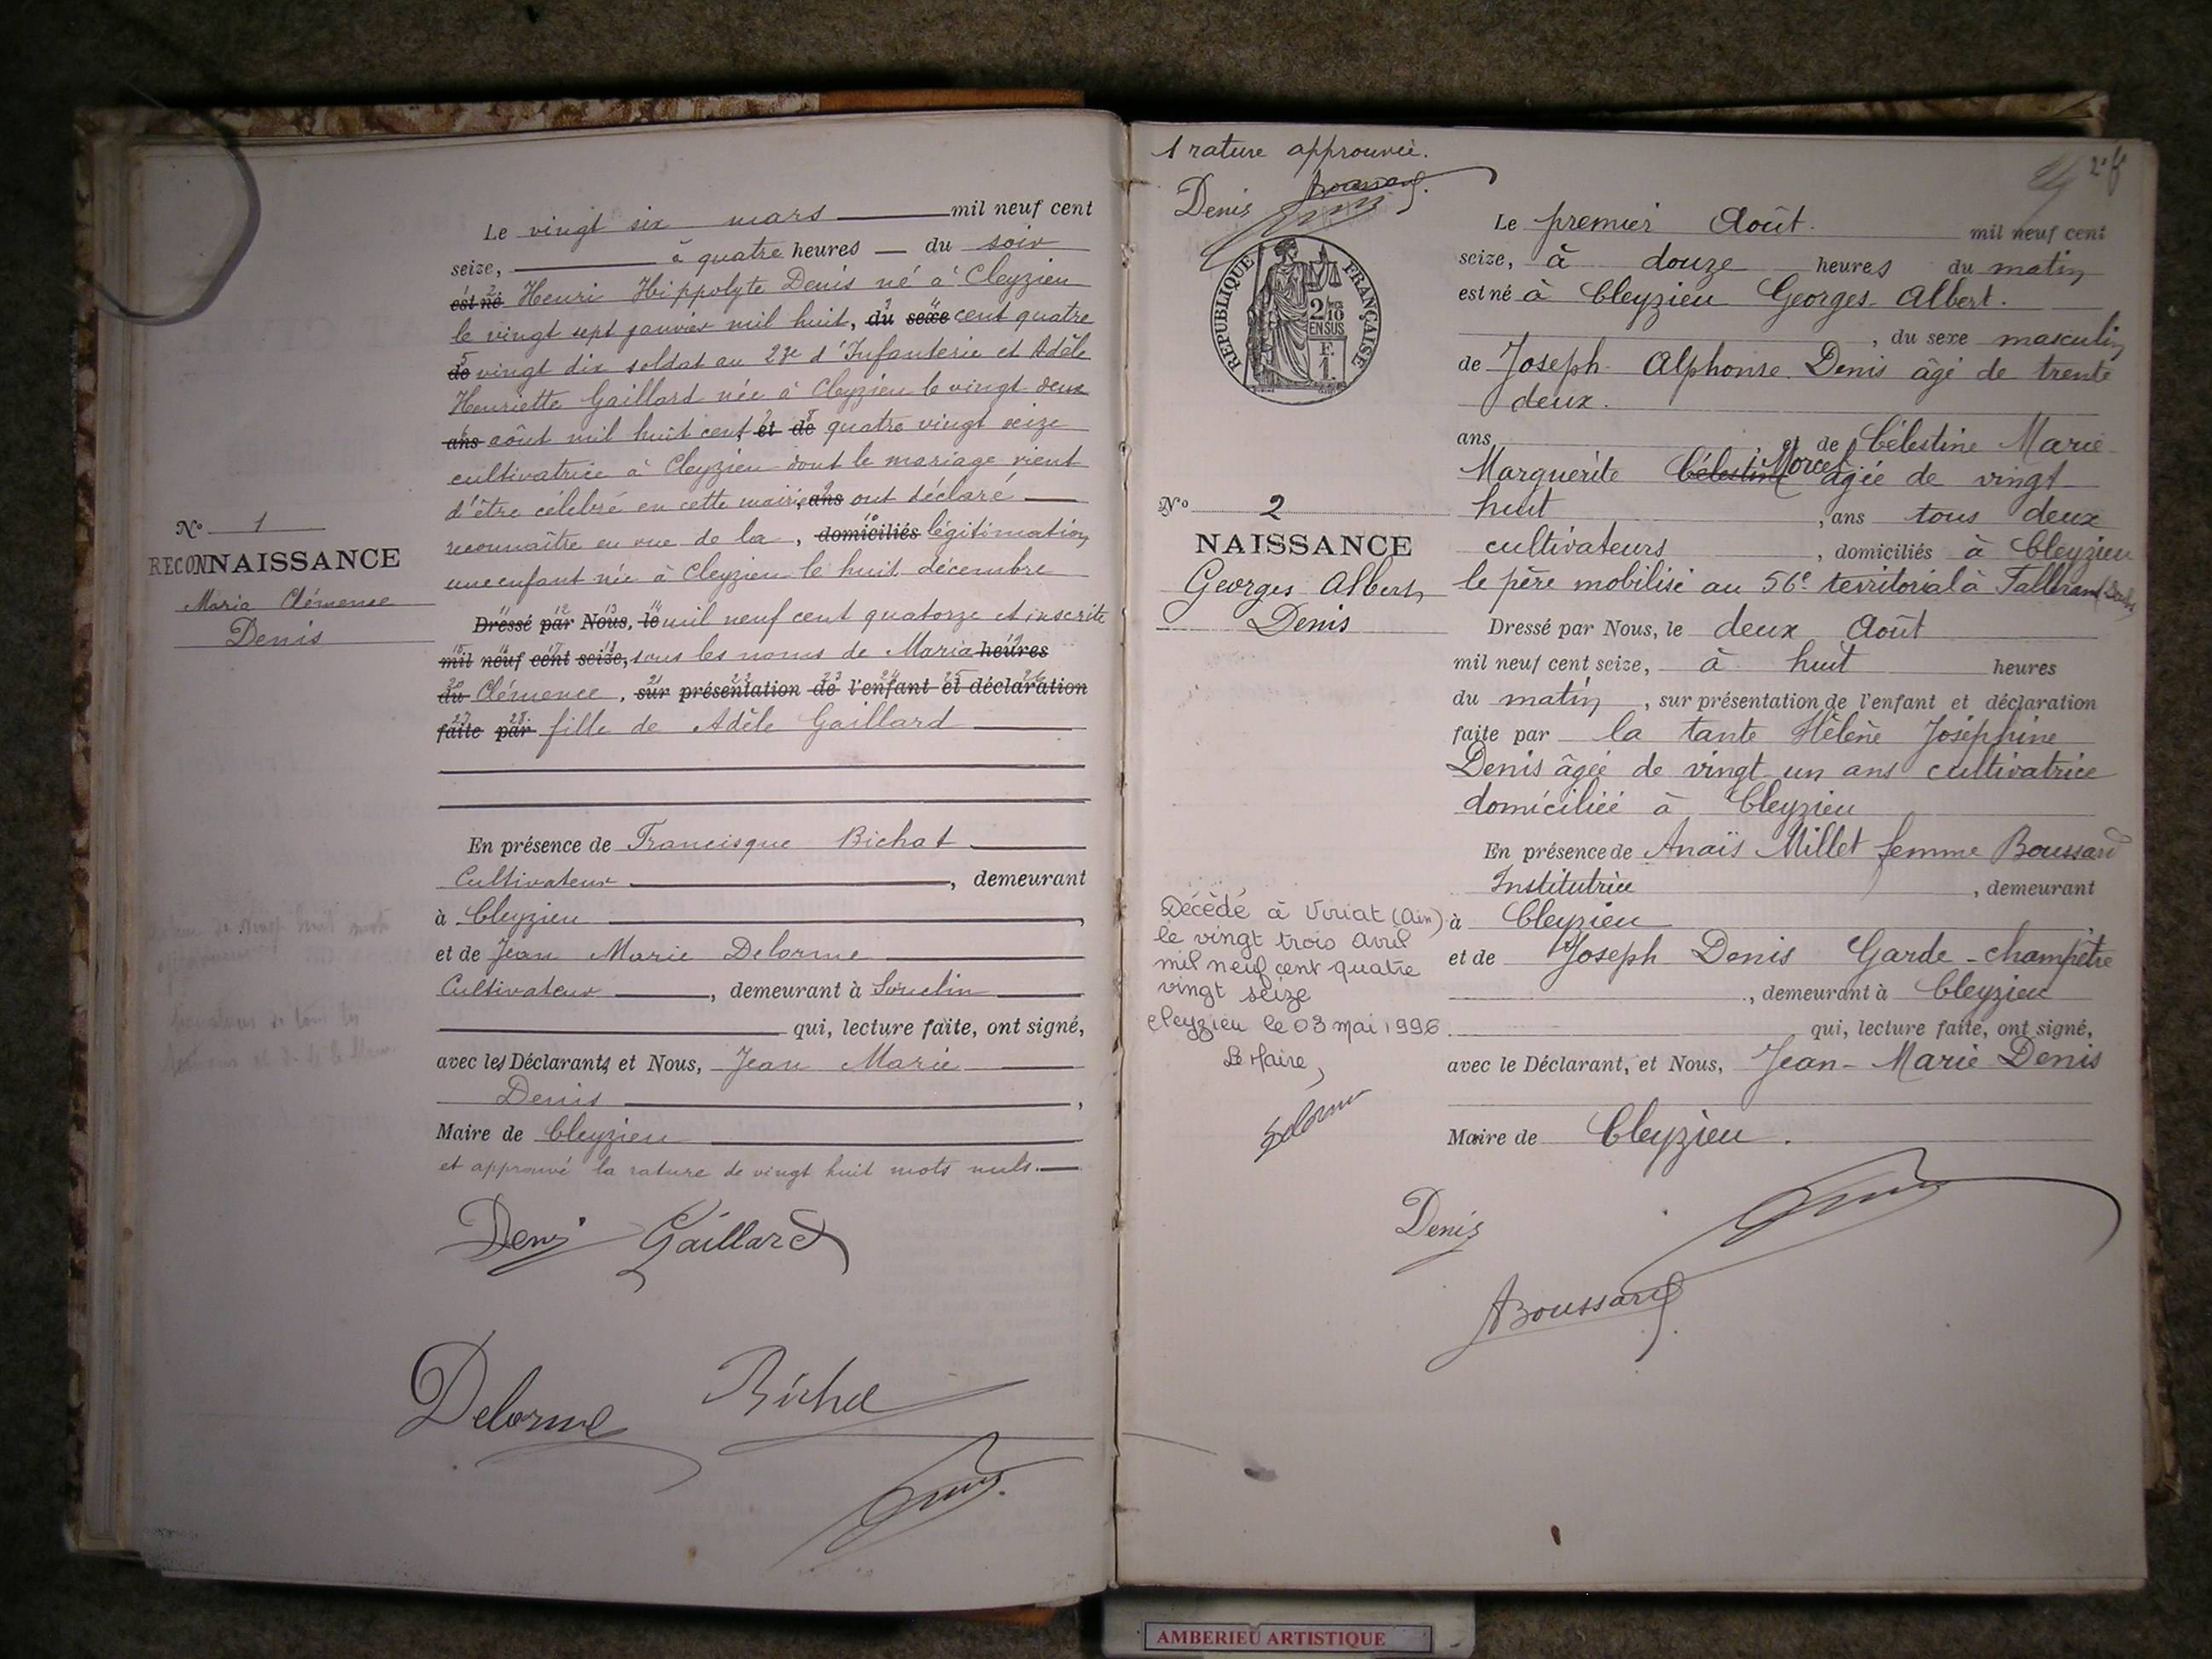 Le vingt six mars mil neuf cent
seize, à quatre heures du soir
est né Henri Hippolyte Denis né à Cleyzieu
le vingt sept janvier mil huit, du sexe cent quatre
de vingt dix soldat au 23e d'Infanterie et Adèle
Henriette Gaillard née à Cleyzieu le vingt deux
ans août mil huit cent et de quatre vingt seize
cultivatrice à Cleyzieu dont le mariage vient
d'être célébré en cette mairie, ans ont déclaré
reconnaître en vue de la, domiciliés légitimation
une enfant née à Cleyzieu le huit décembre
Dressé par Nous, le mil neuf cent quatorze et inscrite
mil neuf cent seize, sous les noms de Maria heures
du Clémence, sur présentation de l'enfant et déclaration
faite par fille de Adèle Gaillard
En présence de Francisque Bichat
Cultivateur, demeurant
à Cleyzieu
et de Jean Marie Delorme
Cultivateur, demeurant à Souclin
qui, lecture faite, ont signé,
avec les Déclarants et Nous, Jean Marie
Denis,
Maire de Cleyzieu
et approuvé la rature de vingt huit mots nuls.
Denis Gaillard
Delorme Bichat
No 1
RECONNAISSANCE
Maria Clémence
Denis
1 rature approuvée.
Denis
RÉPUBLIQUE FRANÇAISE
2/10
EN SUS
No 2
NAISSANCE
Georges Albert
Denis
Décédé à Viriat (Ain)
le vingt trois Avril
mil neuf cent quatre
vingt seize
Cleyzieu le 03 mai 1996
Le Maire,
Delorme
Le premier Août mil neuf cent
seize, à douze heures du matin
est né à Cleyzieu Georges Albert.
, du sexe masculin
de Joseph Alphonse Denis âgé de trente
deux.
ans et de Célestine Marie
Marguerite Célestine Morcel âgée de vingt
huit, ans tous deux
cultivateurs, domiciliés à Cleyzieu
le père mobilisé au 56e territorial à
Dressé par Nous, le deux Août
mil neuf cent seize, à huit heures
du matin, sur présentation de l'enfant et déclaration
faite par la tante Hélène Joséphine
Denis âgée de vingt un ans cultivatrice
domiciliée à Cleyzieu
En présence de Anaïs Millet femme Boussard
Institutrice, demeurant
à Cleyzieu
et de Joseph Denis Garde-champêtre
, demeurant à Cleyzieu
qui, lecture faite, ont signé,
avec le Déclarant, et Nous, Jean-Marie Denis
Maire de Cleyzieu.
Denis
ABoussard
AMBERIEU ARTISTIQUE